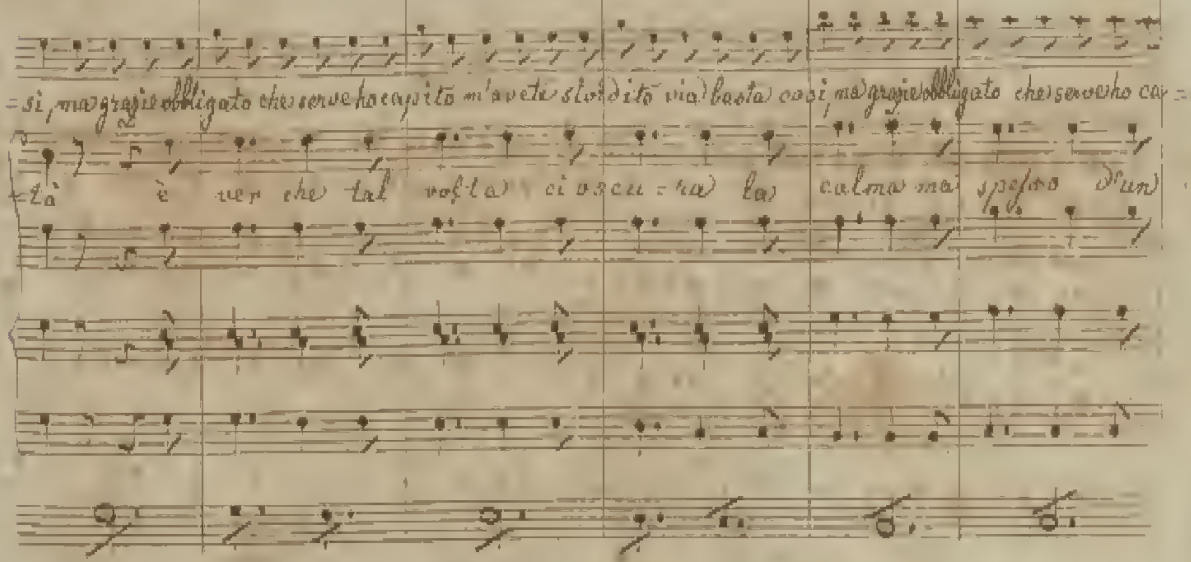 =si, ma grazie obbligato che serve ho capito m'avete stordito via basta così, ma grazie obbligato che serve ho ca=
=tà è ver che tal volta ci oscu=ra la calma ma spesso d'un